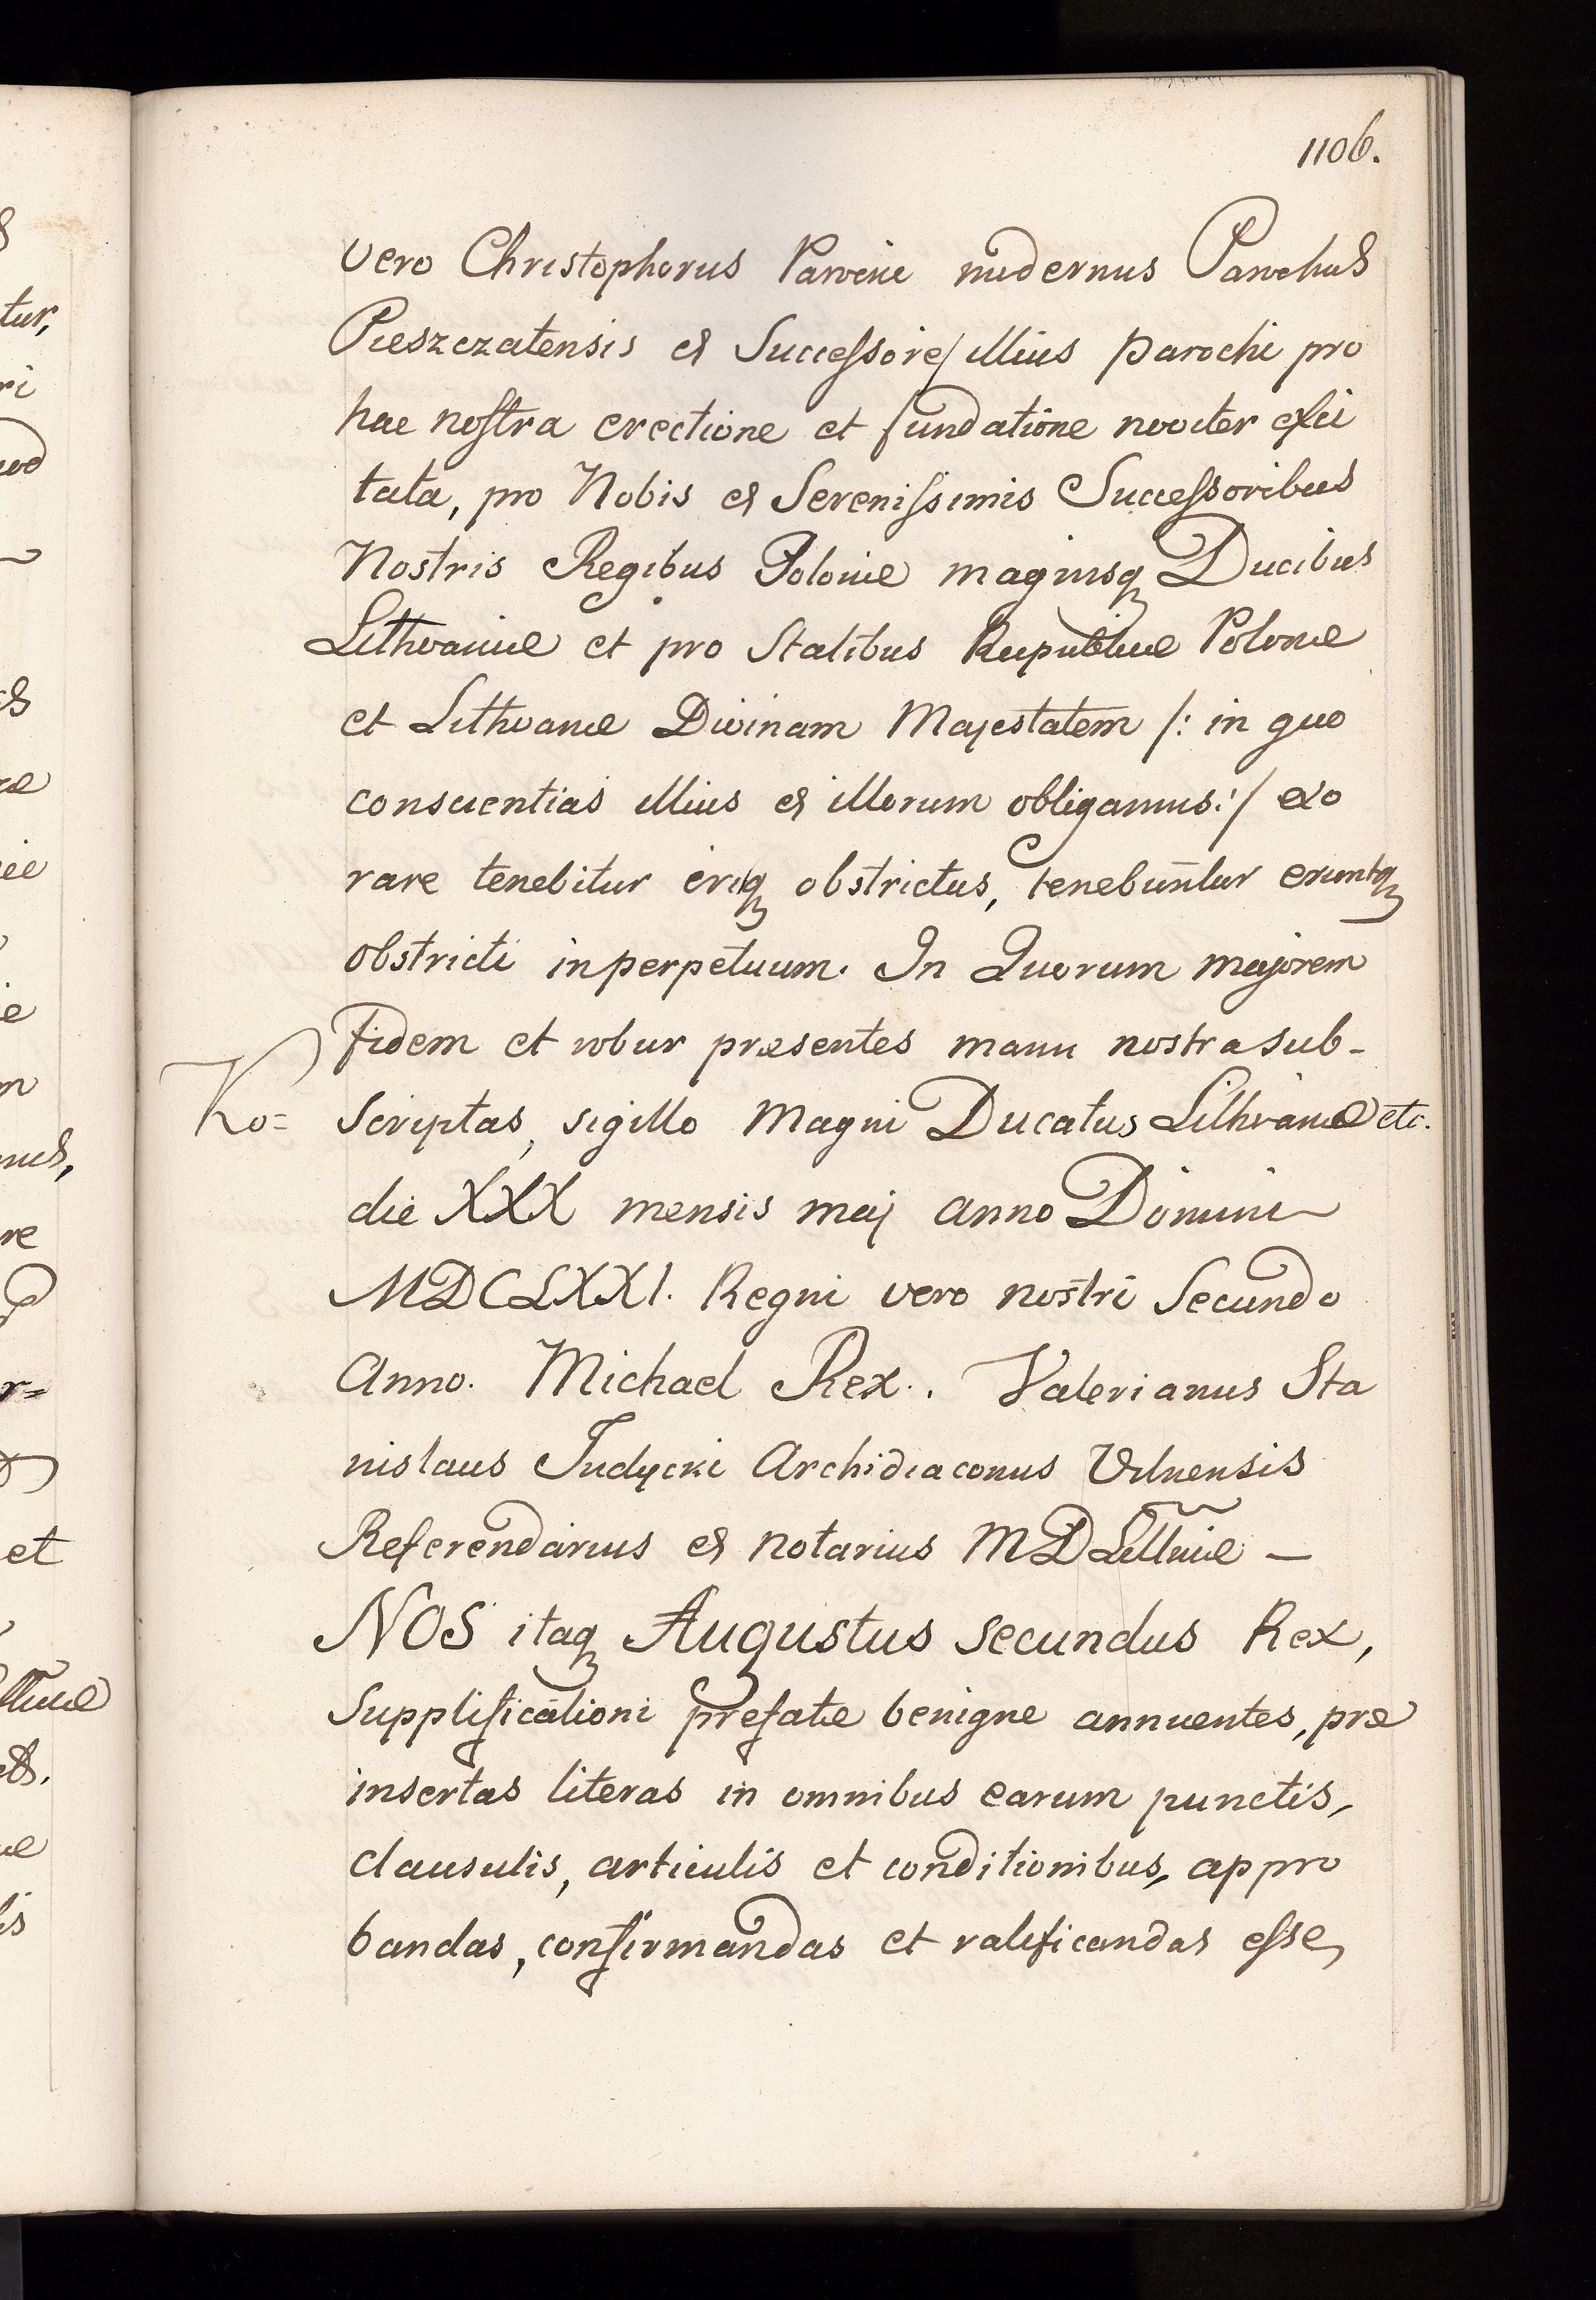 1106.
vero Christophorus Parvini nudernus Parochus
Pieszczatensis et Successores illius parochi pro
hac nostra erectione et fundatione noviter exci
tata, pro Nobis et Serenissimis Successoribus
Nostris Regibus Poloniæ magnisq Ducibus
Lithvaniæ et pro Statibus Reipublicæ Poloniæ
et Lithvaniæ Divinam Majestatem /: in quo
conscientias illius et illorum obligamus:/ exo
rare tenebitur eritq obstrictus, tenebuntur eruntq
obstricti inperpetuum. In Quorum majorem
fidem et robur præsentes manu nostra sub-
Ko= scriptas, sigillo Magni Ducatus Lithvaniæ etc.
die XXX mensis maj anno Domini
MDCLXXI. Regni vero nostri Secundo
Anno. Michael Rex. Valerianus Sta
nislaus Judycki Archidiaconus Vilnensis
Referendarius et notarius MDLithniæ —
NOS itaq Augustus secundus Rex,
Supplificationi prefatæ benigne annuentes, præ
insertas literas in omnibus earum punctis,
clausulis, articulis et conditionibus, appro
bandas, confirmandas et ratificandas esse,